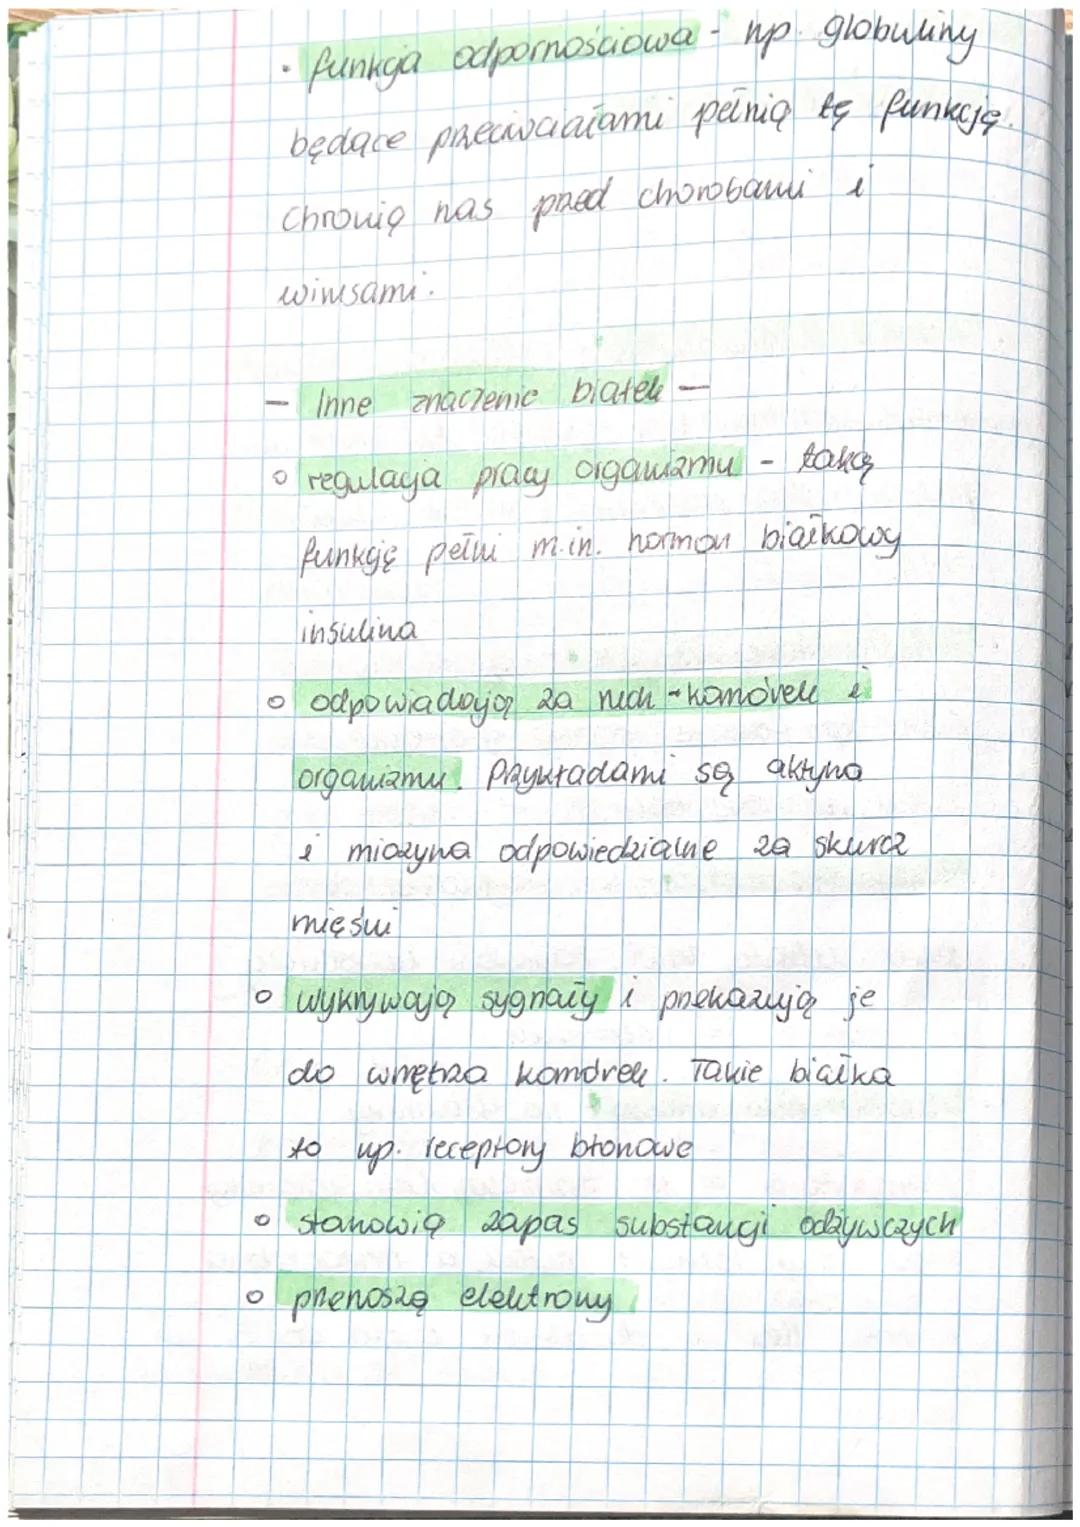 • funkcja odpornościowa - np. globuliny
będące przeciwciałami pełnią tę funkcję.
Chronią nas przed chorobami i
wirusami.
- Inne znaczenie białek -
o regulacja pracy organizmu - taką
funkcję pełni m.in. hormon białkowy
insulina
o odpowiadają za ruch komórek i
organizmu. Przykładami są aktyna
i miozyna odpowiedzialne za skurcz
mięśni
o wykrywają sygnały i przekazują je
do wnętrza komórek. Takie białka
to np. receptory błonowe
o stanowią zapas substancji odżywczych
o przenoszą elektrony